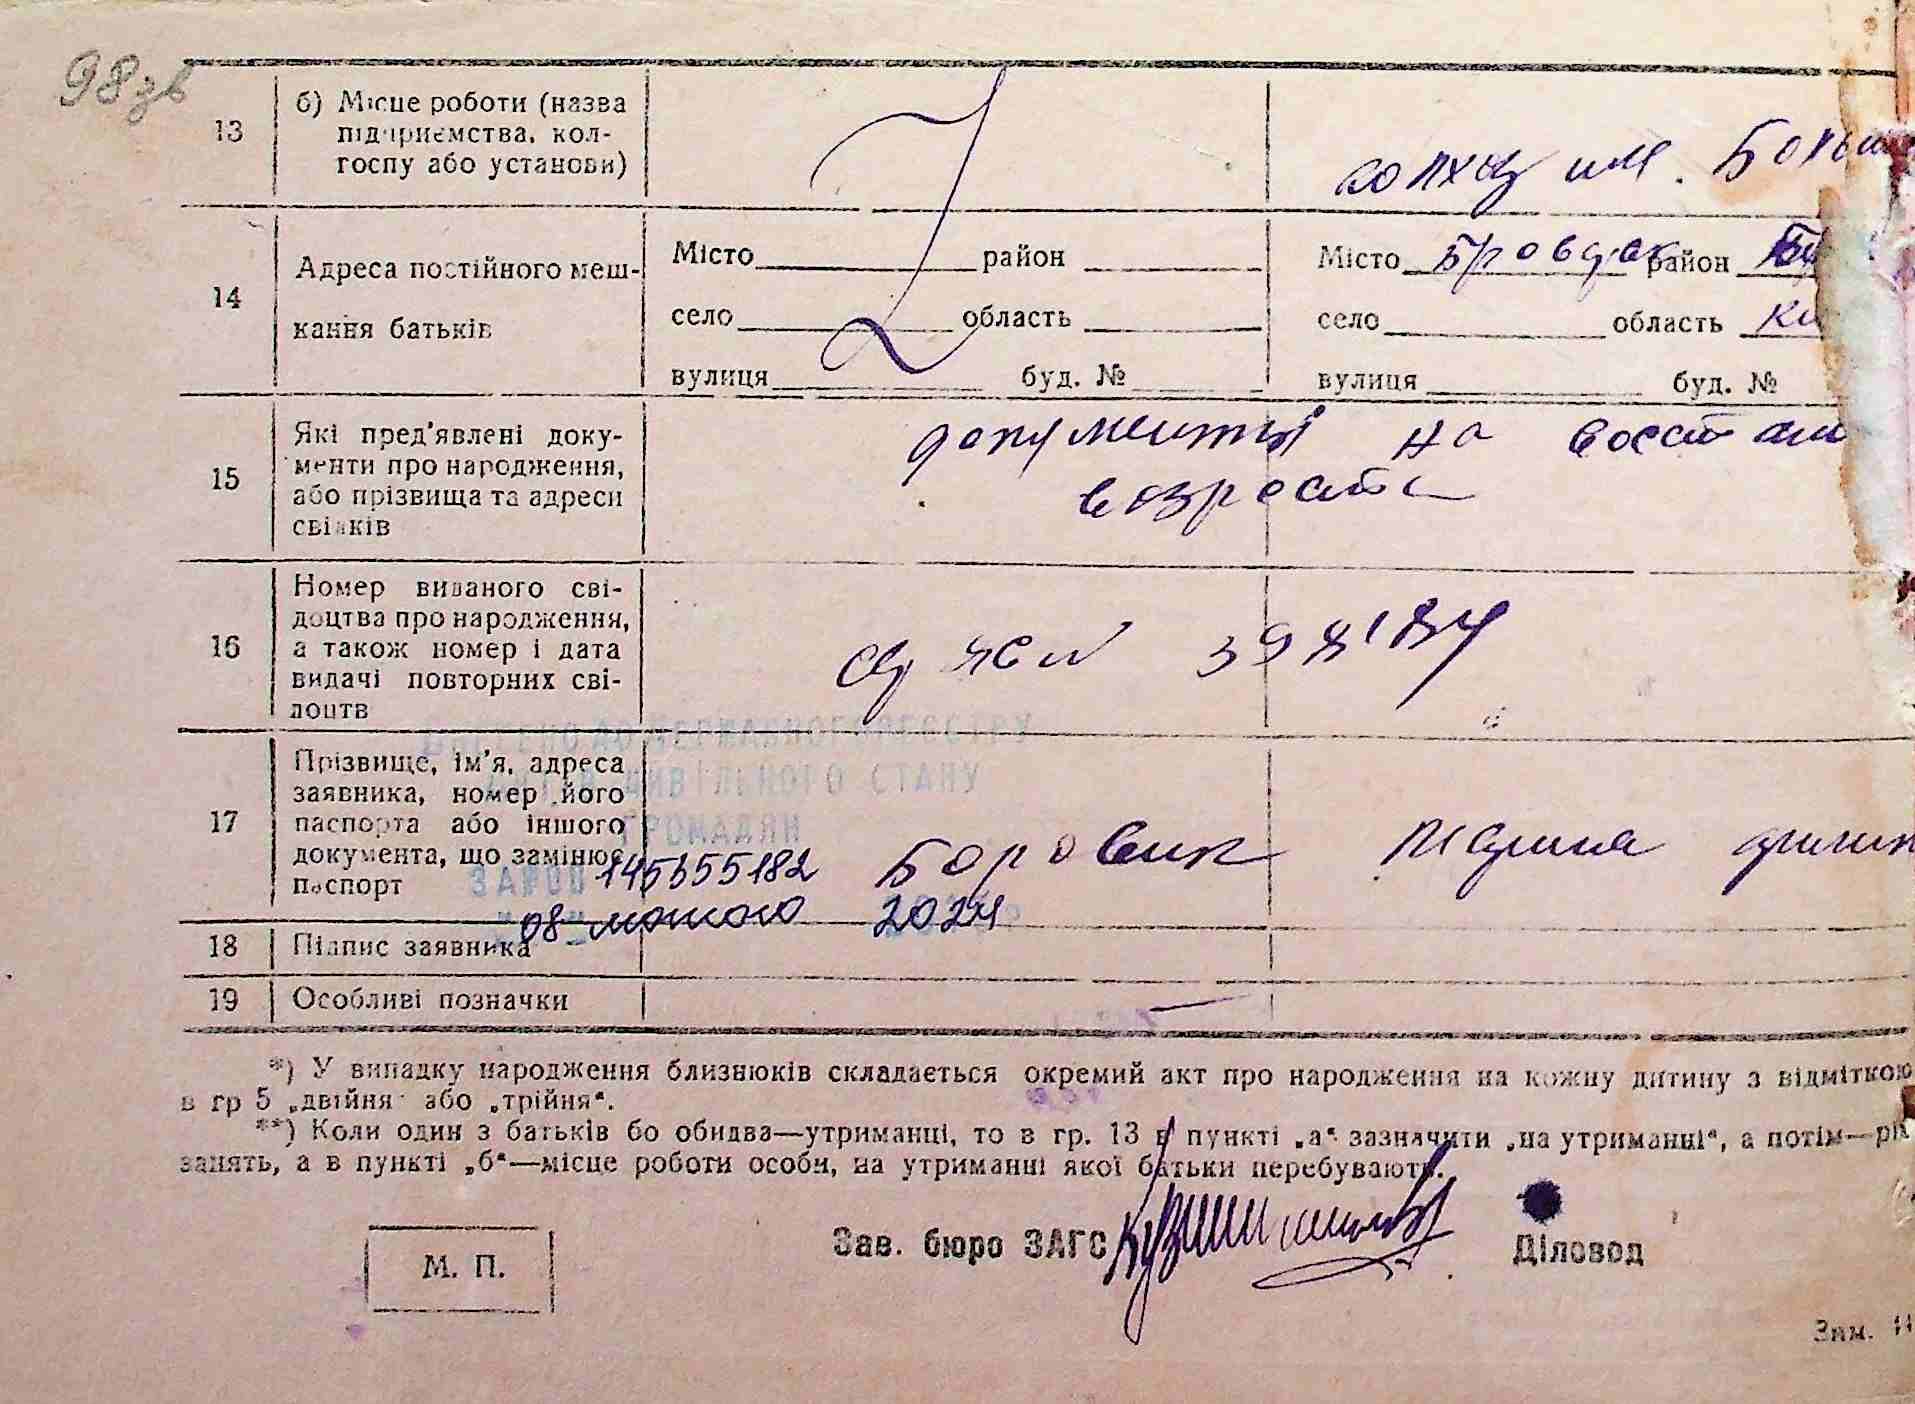 98зв
13
б) Місце роботи (назва
підприємства, кол-
госпу або установи)
колхоз им. Больш
14
Адреса постійного меш-
кання батьків
Місто район
село область
вулиця буд. №
Місто район
село область Ки
вулиця буд. №
15
Які пред'явлені доку-
менти про народження,
або прізвища та адреси
свідків
документы на
возраста
16
Номер виданого сві-
доцтва про народження,
а також номер і дата
видачі повторних сві-
доцтв
17
Прізвище, ім'я, адреса
заявника, номер його
паспорта або іншого
документа, що замінює
паспорт
ВНЕСЕНО ДО ДЕРЖАВНОГО РЕЄСТРУ
АКТІВ ЦИВІЛЬНОГО СТАНУ
ГРОМАДЯН
ЗА №00 145355182
08 лютого 2024
Боровик Мария
18
Підпис заявника
19
Особливі позначки
*) У випадку народження близнюків складається окремий акт про народження на кожну дитину з відміткою
в гр 5 „двійня" або „трійня".
**) Коли один з батьків бо обидва—утриманці, то в гр. 13 в пункті „а" зазначити „на утриманні", а потім—рід
занять, а в пункті „б"—місце роботи особи, на утриманні якої батьки перебувають.
М. П.
Зав. бюро ЗАГС
Діловод
Зам.